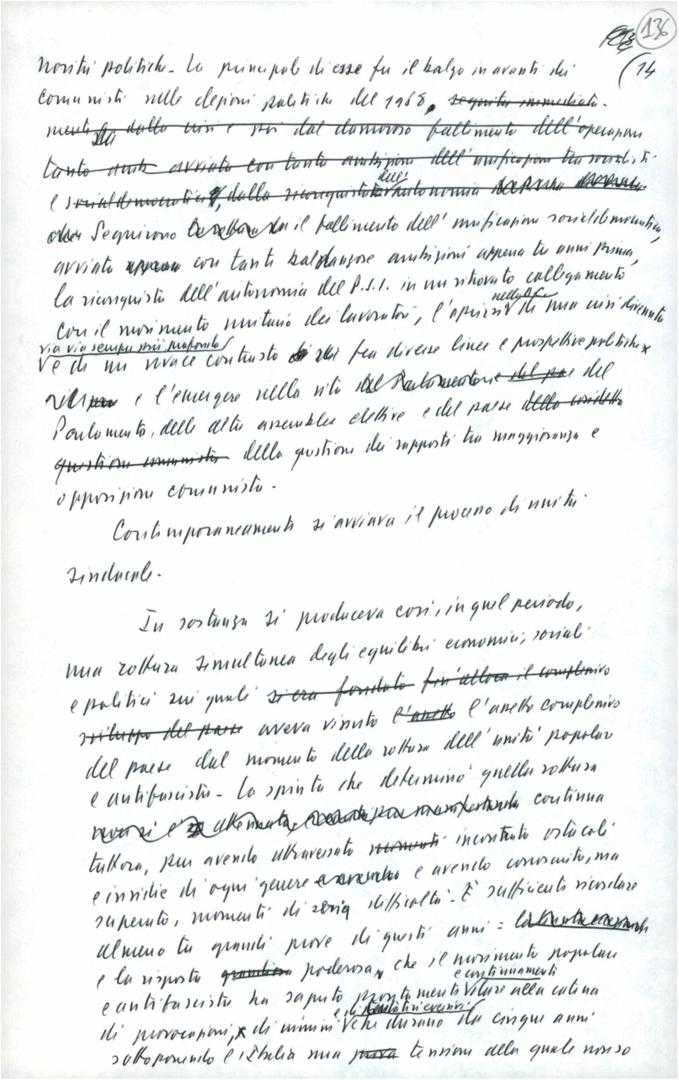 136
(14
novità politiche - La principale di esse fu il balzo in avanti dei
comunisti nelle elezioni politiche del 1968, seguito immediata-
mente dalla crisi e poi dal clamoroso fallimento dell'operazione
tanto avviata con tanta ambizione dell'unificazione tra socialisti
e socialdemocratici, dalla riconquista dell'autonomia
Seguirono il fallimento dell'unificazione socialdemocratica,
avviata con tanti baldanzose ambizioni appena tre anni prima,
la riconquista dell'autonomia del P.S.I. in un ritrovato collegamento
con il movimento unitario dei lavoratori, l'aprirsi nella D.C. di una crisi divenuta
via via sempre più profonda
e di un vivace contrasto fra diverse linee e prospettive politiche
e l'emergere nella vita del
Parlamento, delle altre assemblee elettive e del paese della cosidetta
questione comunista della questione dei rapporti tra maggioranza e
opposizione comunista.
Contemporaneamente si avviava il processo di unità
sindacale.
In sostanza si produceva così, in quel periodo,
una rottura simultanea degli equilibri economici, sociali
e politici sui quali si era fondato fin'allora il complessivo
sviluppo del paese aveva vissuto l'assetto l'assetto complessivo
del paese dal momento della rottura dell'unità popolare
e antifascista - La spinta che determinò quella rottura
continua
tuttora, pur avendo attraversato momenti incontrato ostacoli
e insidie di ogni genere e avendo conosciuto, ma
superato, momenti di seria difficoltà - È sufficiente ricordare
almeno tre grandi prove di questi anni:
e la risposta poderosa, che il movimento popolare
e antifascista ha saputo prontamente e continuamente dare alla catena
di provocazioni, di crimini e di tentativi eversivi che durano da cinque anni
sottoponendo l'Italia una prova tensione della quale non so